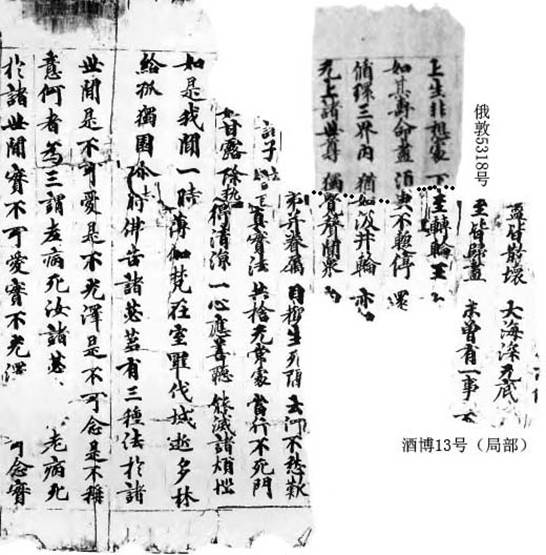 俄敦5318号
盡皆散壞 大海深无底
至皆歸盡 未曾有一事 不
上至非想處 下至轉輪王
如其壽命盡 須臾不暫停 還
循環三界內 猶如汲井輪 亦
无上諸世尊 獨覺聲聞眾
弟并眷屬 目觀生死隔 云何不愁歎
真實法 共捨无常處 當行不死門
如甘露 除熱得清涼 一心應善聽 能滅諸煩惱
如是我聞一時薄伽梵在室羅伐城逝多林
給孤獨園 尒時佛告諸苾芻有三種法於諸
世間是不可愛是不光澤是不可念是不稱
意何者為三謂老病死汝諸苾 老病死
於諸世間實不可愛實不光澤 可念實
酒博13号（局部）